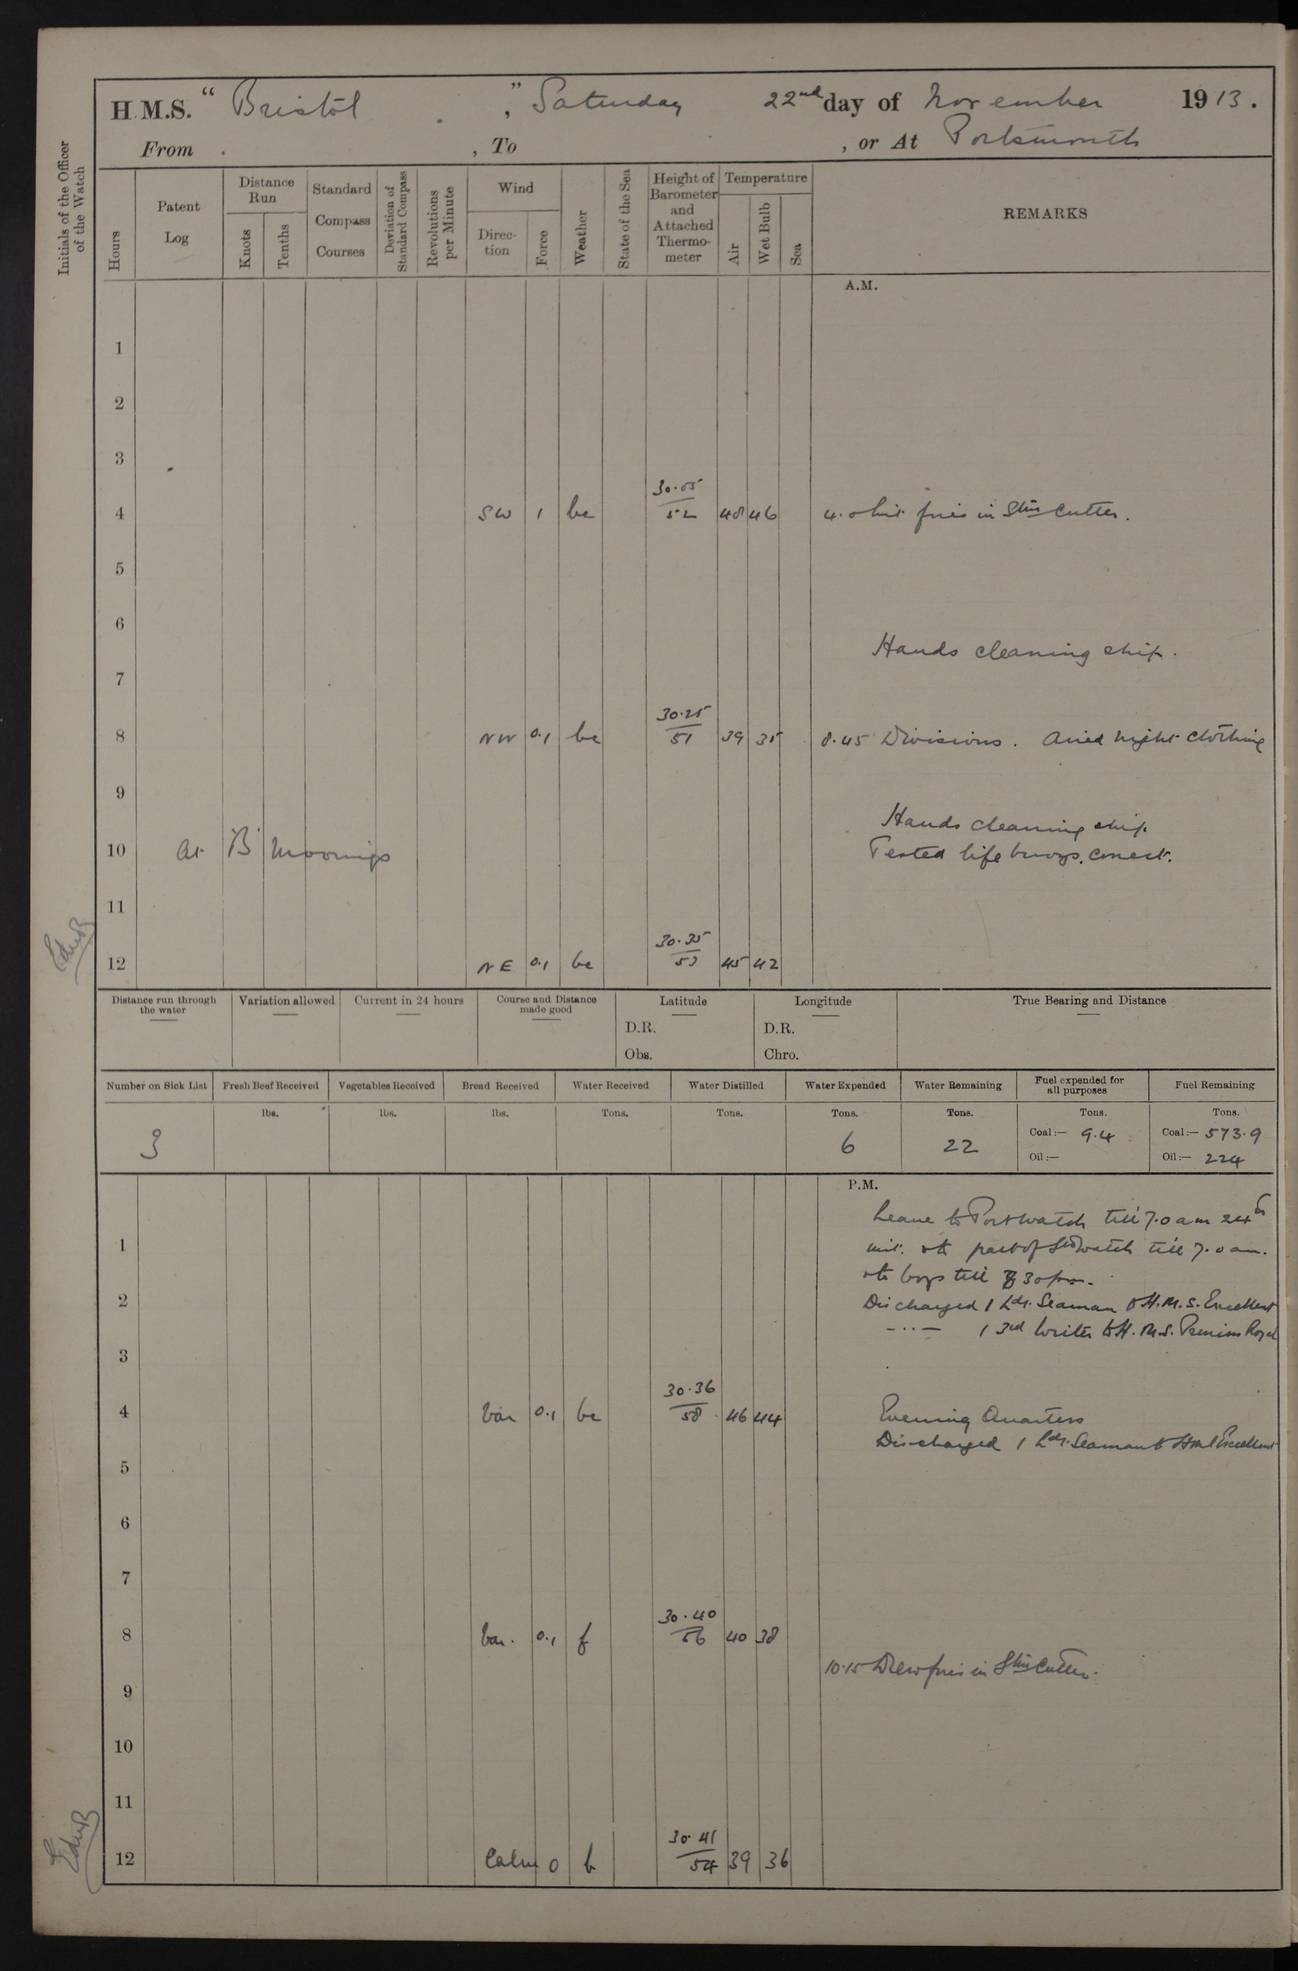 H.M.S. "Bristol", Saturday 22nd day of November 1913.
From , To , or At Portsmouth
Initials of the Officer of the Watch
Hours
Patent Log
Distance Run
Knots
Tenths
Standard Compass Courses
Deviation of Standard Compass
Revolutions per Minute
Wind
Direction
Force
Weather
State of the Sea
Height of Barometer and Attached Thermometer
Temperature
Air
Wet Bulb
Sea
REMARKS
A.M.
1
2
3
4 SW 1 bc 30.05 52 48 46 4.0 Lit fires in Stm Cutter.
5
6
Hands cleaning ship.
7
8 NW 0.1 bc 30.25 51 39 35 8.45 Divisions. Aired night clothing
9
Hands cleaning ship
10 At 'B' Moorings Tested life buoys, correct.
11
12 NE 0.1 bc 30.35 53 45 42
Distance run through the water
Variation allowed
Current in 24 hours
Course and Distance made good
Latitude
D.R.
Obs.
Longitude
D.R.
Chro.
True Bearing and Distance
Number on Sick List
Fresh Beef Received
Vegetables Received
Bread Received
Water Received
Water Distilled
Water Expended
Water Remaining
Fuel expended for all purposes
Fuel Remaining
lbs. lbs. lbs. Tons. Tons. Tons. Tons. Tons. Tons.
3 6 22 Coal:— 9.4 Coal:— 573.9
Oil:— Oil:— 224
P.M.
Leave to Port watch till 7.0 am 24th
1 part of Stbd watch till 7.0 am.
boys till 30 pm.
2 Discharged 1 Ldg. Seaman to H.M.S. Excellent
— ·· — 1 3rd Writer to H.M.S. Princess Royal
3
4 Var 0.1 bc 30.36 58 46 44 Evening Quarters
Discharged 1 Ldg. Seaman to HMS Excellent
5
6
7
8 Var. 0.1 f 30.40 56 40 38
10.15 Drew fires in Stm Cutter.
9
10
11
12 Calm 0 b 30.41 54 39 36